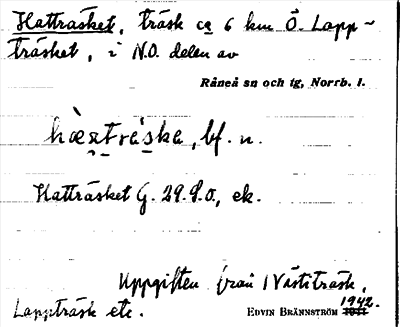 Hatträsket, träsk ca 6 km Ö. Lapp-
träsket, i N.O. delen av
Råneå sn och tg, Norrb. l.
bf. n.
Hatträsket G. 29. S.O., ek.
Uppgiften från Västiträsk,
Lappträsk etc.
EDVIN BRÄNNSTRÖM 1942.